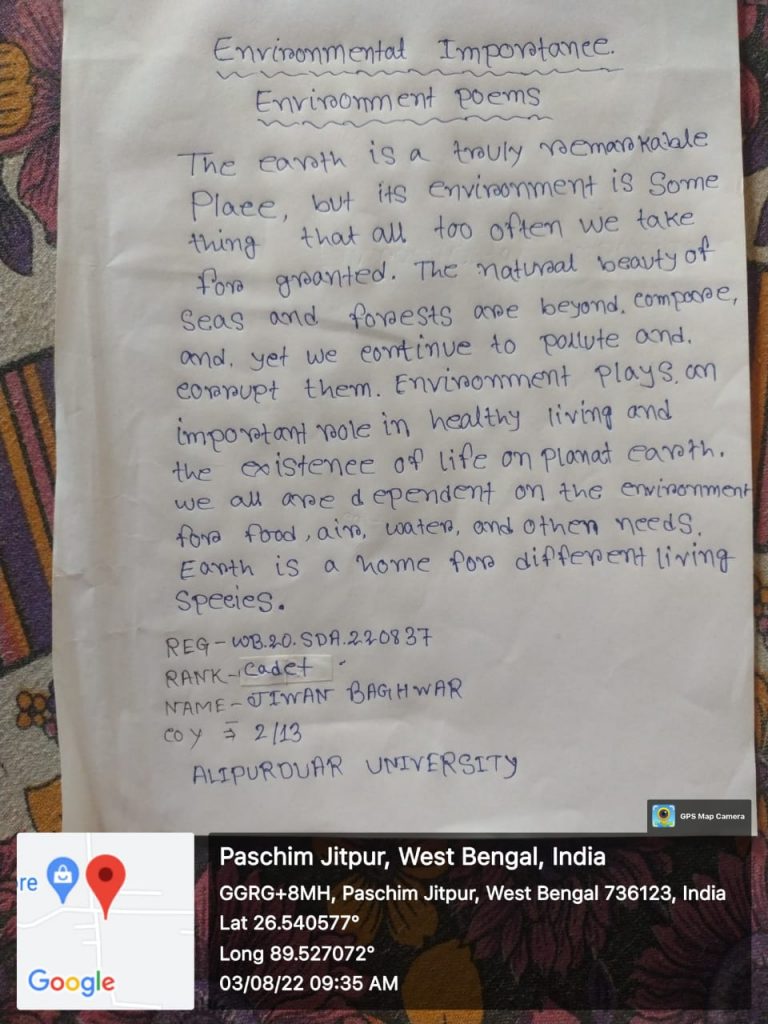 Environmental Importance.
Environment Poems
The earth is a truly remarkable
Place, but its environment is Some
thing that all too often we take
for granted. The natural beauty of
Seas and forests are beyond. compare,
and. yet we continue to pollute and.
corrupt them. Environment plays. an
important role in healthy living and
the existence of life on planat earth.
we all are dependent on the environment
for food, air, water, and other needs.
Earth is a home for different living
Species.
REG - WB.20.SDA.220837
RANK - Cadet
NAME - JIWAN BAGHWAR
COY = 2/13
ALIPURDUAR UNIVERSITY
GPS Map Camera
re
Google
Paschim Jitpur, West Bengal, India
GGRG+8MH, Paschim Jitpur, West Bengal 736123, India
Lat 26.540577°
Long 89.527072°
03/08/22 09:35 AM